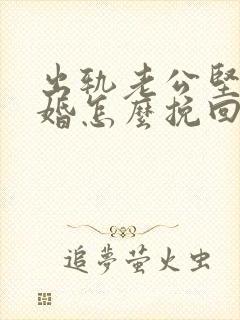 出軌老公堅
婚怎麼挽回
追夢萤火虫